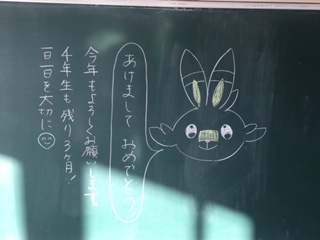 あけまして おめでとう!
今年もよろしくお願いします
千年生も残り3ヶ月!
一日一日を大切に